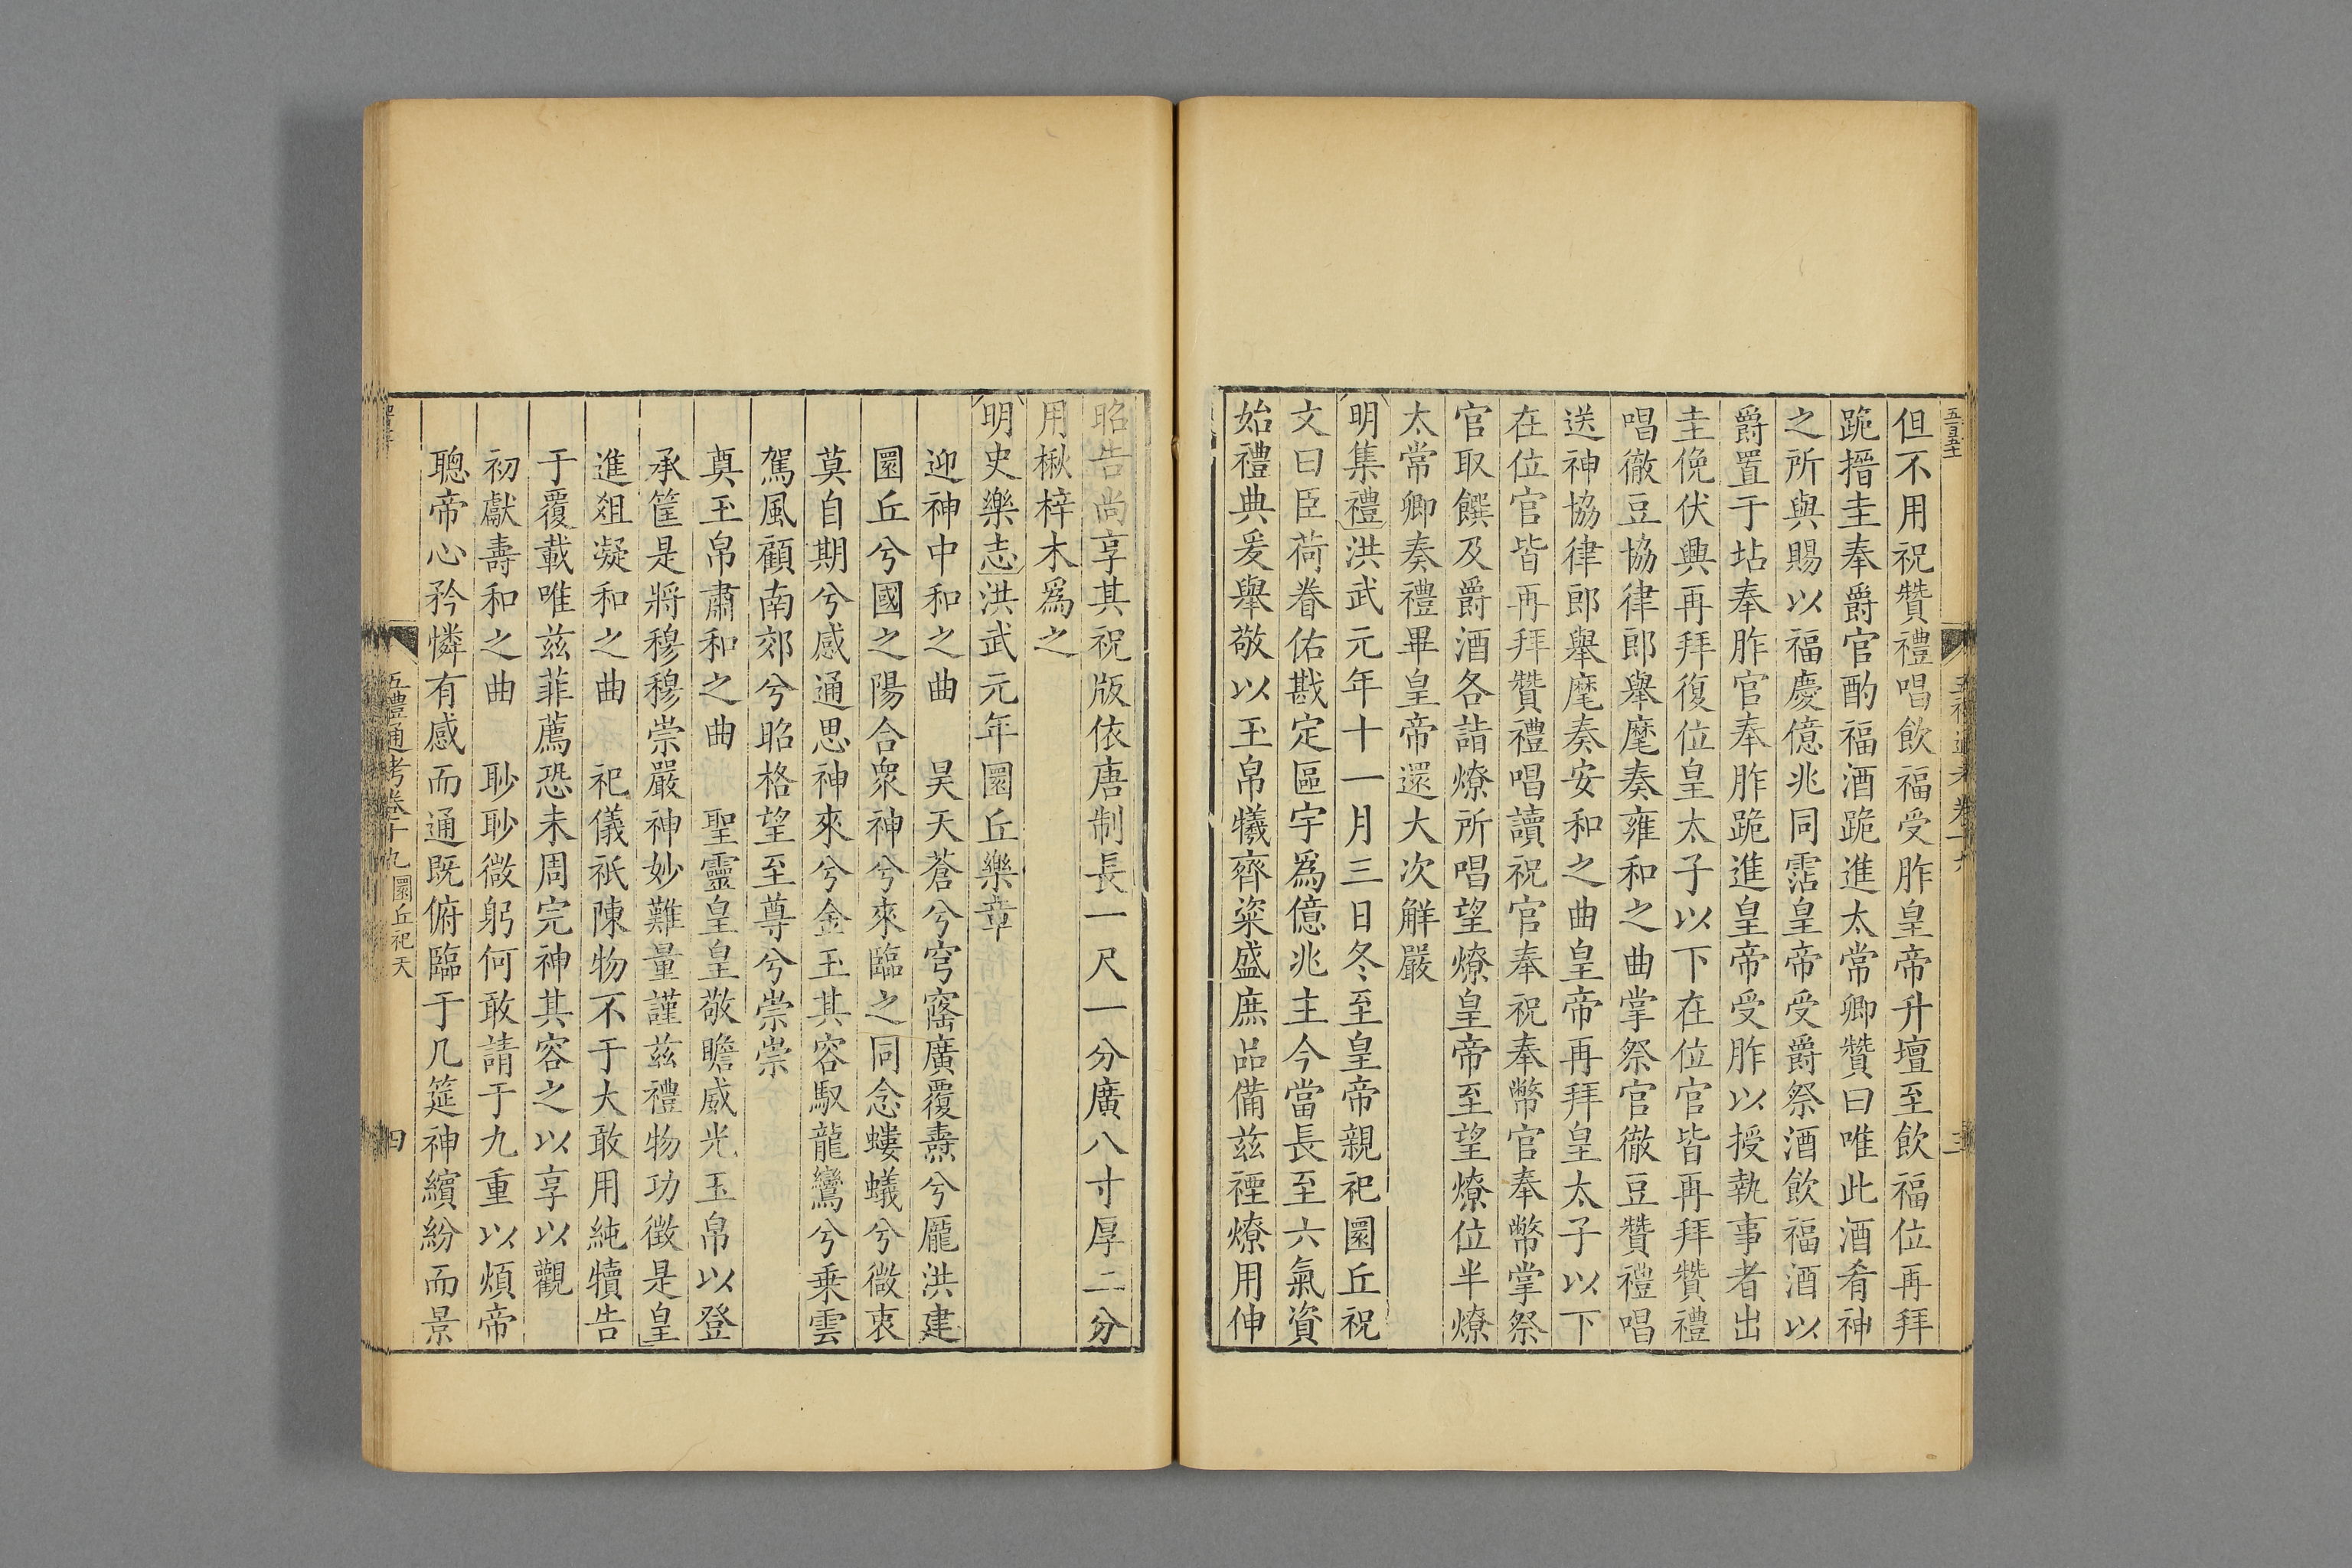 但不用祝贊禮唱飲福受胙皇帝升壇至飲福位再拜
跪搢圭奉爵官酌福酒跪進太常卿贊曰唯此酒肴神
之所與賜以福慶億兆同霑皇帝受爵祭酒飲福酒以
爵置于坫奉胙官奉胙跪進皇帝受胙以授執事者出
圭俛伏興再拜復位皇太子以下在位官皆再拜贊禮
唱徹豆協律郎舉麾奏雍和之曲掌祭官徹豆贊禮唱
送神協律郎舉麾奏安和之曲皇帝再拜皇太子以下
在位官皆再拜贊禮唱讀祝官奉祝奉幣官奉幣掌祭
官取饌及爵酒各詣燎所唱望燎皇帝至望燎位半燎
太常卿奏禮畢皇帝還大次解嚴
明集禮洪武元年十一月三日冬至皇帝親祀圜丘祝
文曰臣荷眷佑戡定區宇爲億兆主今當長至六氣資
始禮典爰舉敬以玉帛犧齊粢盛庶品備茲禋燎用伸
昭告尚享其祝版依唐制長一尺一分廣八寸厚二分
用楸梓木爲之
明史樂志洪武元年圜丘樂章
迎神中和之曲　昊天蒼兮穹窿廣覆燾兮龐洪建
圜丘兮國之陽合衆神兮來臨之同念螻蟻兮微衷
莫自期兮感通思神來兮金玉其容馭龍鸞兮乗雲
駕風顧南郊兮昭格望至尊兮崇崇
奠玉帛肅和之曲　聖靈皇皇敬瞻威光玉帛以登
承筐是將穆穆崇嚴神妙難量謹茲禮物功徵是皇
進俎凝和之曲　祀儀祇陳物不于大敢用純犢告
于覆載唯茲菲薦恐未周完神其容之以享以觀
初獻壽和之曲　眇眇微躬何敢請于九重以煩帝
聰帝心矜憐有感而通既俯臨于几筵神繽紛而景
五禮通考卷十九 圜丘祀天
四